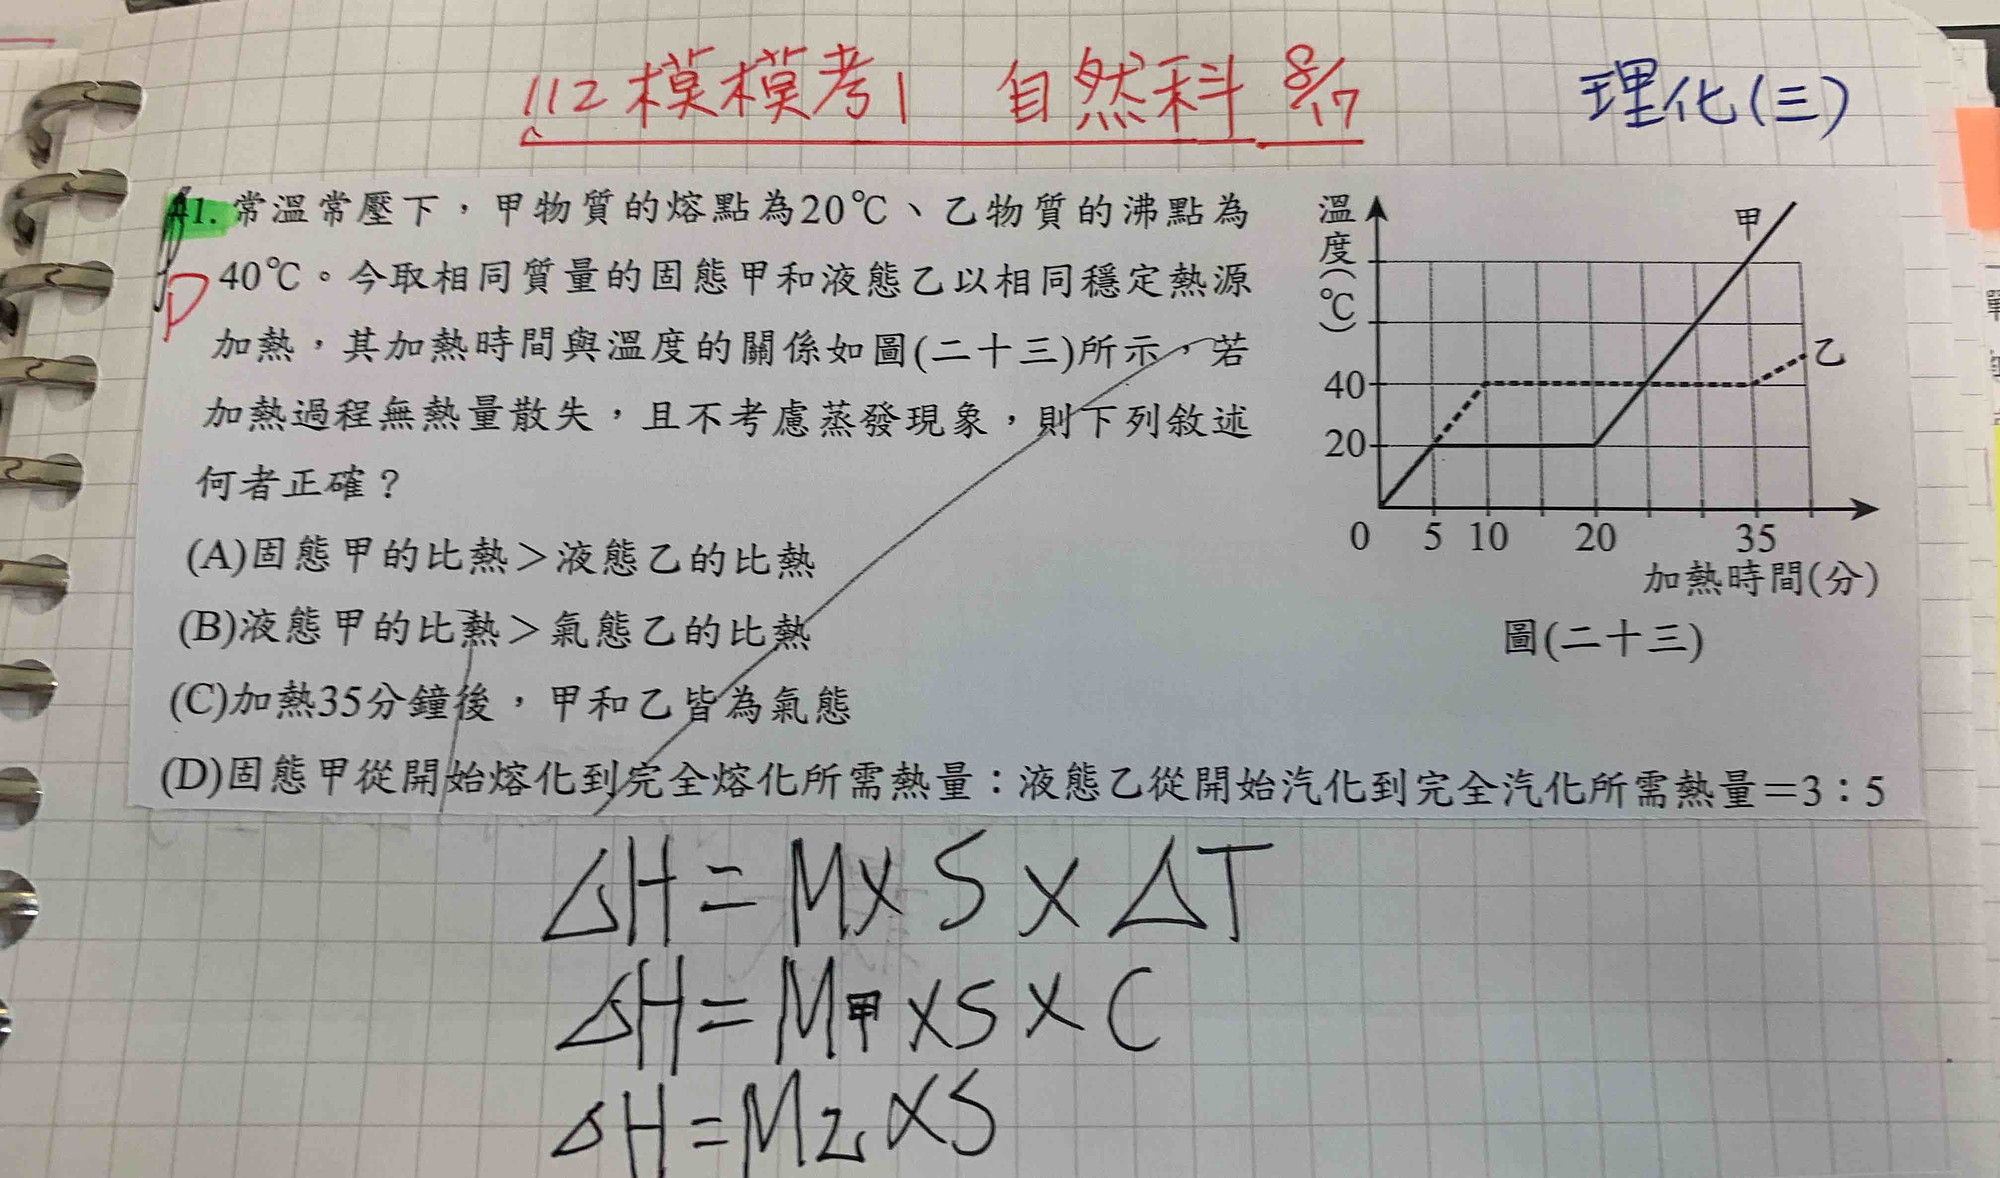 112模模考1 自然科 8/17
理化(三)
41.常溫常壓下，甲物質的熔點為20℃、乙物質的沸點為
40℃。今取相同質量的固態甲和液態乙以相同穩定熱源
加熱，其加熱時間與溫度的關係如圖(二十三)所示，若
加熱過程無熱量散失，且不考慮蒸發現象，則下列敘述
何者正確？
D
(A)固態甲的比熱＞液態乙的比熱
(B)液態甲的比熱＞氣態乙的比熱
(C)加熱35分鐘後，甲和乙皆為氣態
(D)固態甲從開始熔化到完全熔化所需熱量：液態乙從開始汽化到完全汽化所需熱量＝3：5
溫度(℃)
甲
乙
40
20
0 5 10 20 35
加熱時間(分)
圖(二十三)
△H=M×S×△T
△H=M甲×S×C
△H=M乙×S